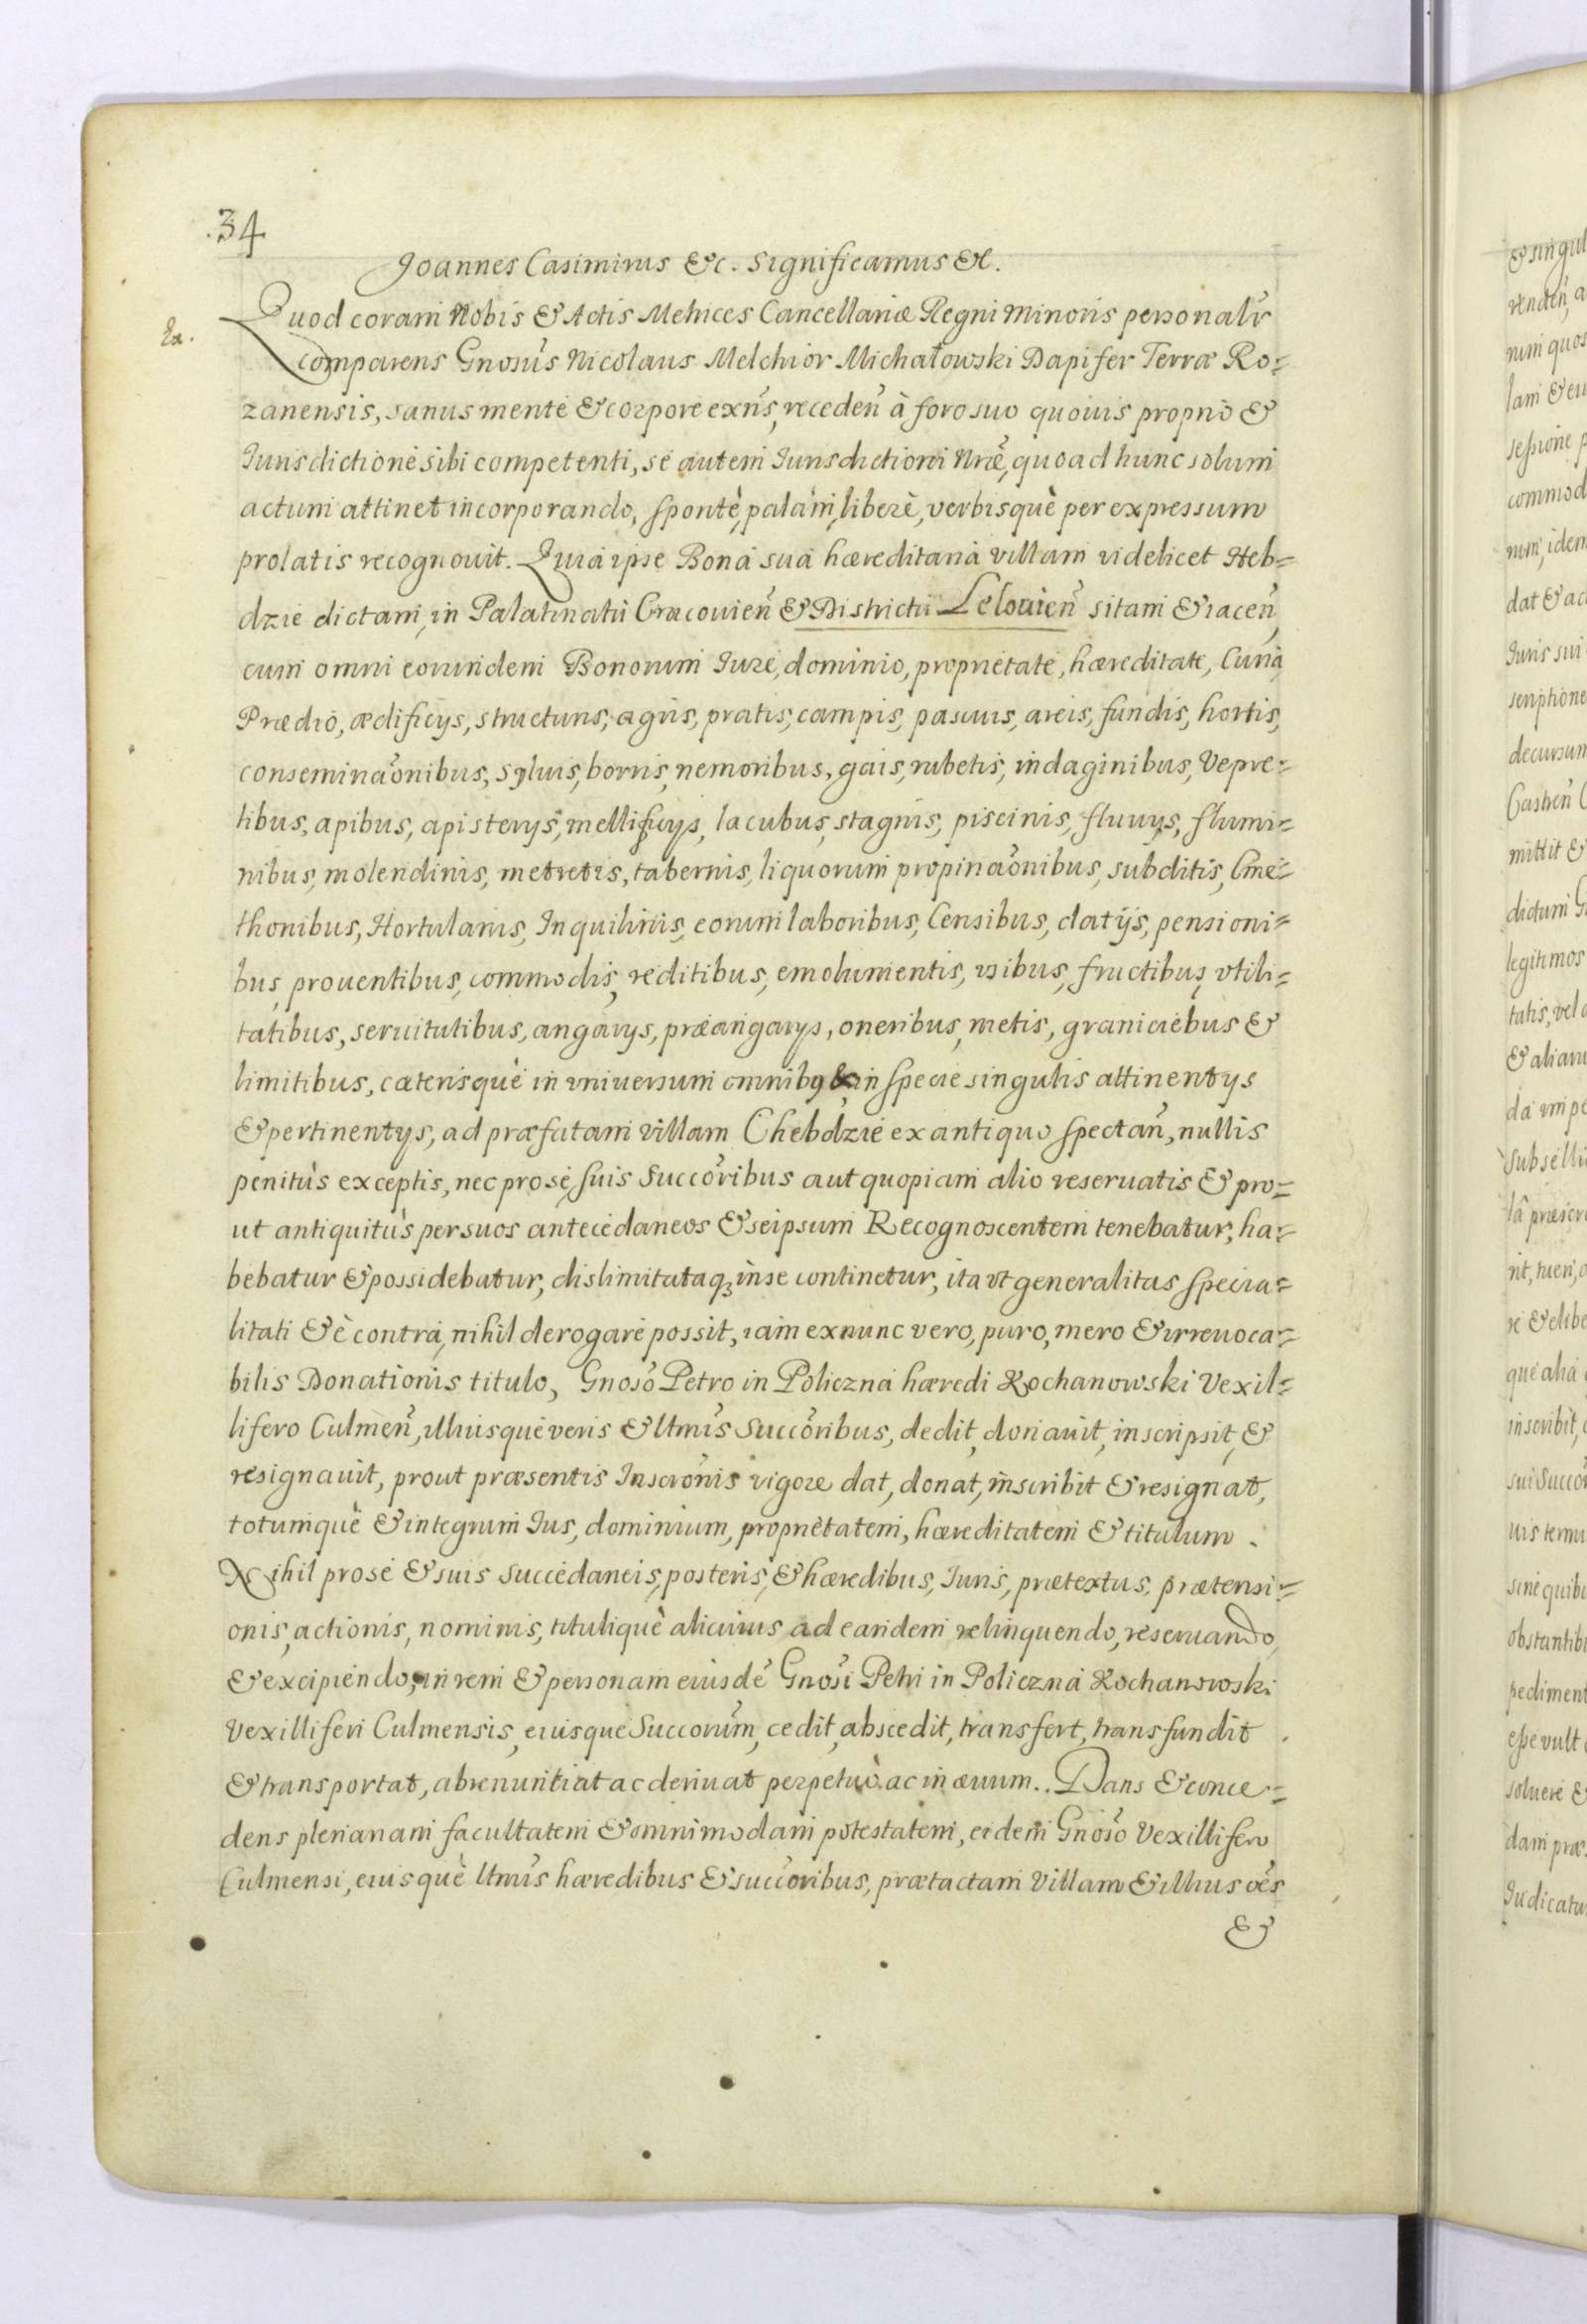 34
Joannes Casimirus &c. Significamus &c.
Ex.
Quod coram Nobis & Actis Metrices Cancellariæ Regni Minoris personalr̃
comparens Gnosũs Nicolaus Melchior Michałowski Dapifer Terræ Ro=
zanensis, sanus mente & corpore exñs, recedeñ à foro suo quouis proprio &
Jurisdictione sibi competenti, se autem Jurisdictioni Nræ̃, quoad hunc solum
actum attinet incorporando, sponte, palàm, liberè, verbisquè per expressum
prolatis recognouit. Quia ipse Bona sua hæreditaria villam videlicet Heb=
dzie dictam, in Palatinatu Cracouieñ & Districtu Lelouieñ sitam & iaceñ,
cum omni eorundem Bonorum Jure, dominio, proprietate, hæreditate, Curia,
Prædio, ædificijs, structuris, agris, pratis, campis, pascuis, areis, fundis, hortis,
conseminaõnibus, syluis, borris, nemoribus, gais, rubetis, indaginibus, Vepre=
tibus, apibus, apisterijs, mellificijs, lacubus, stagnis, piscinis, fluuijs, flumi=
nibus, molendinis, metretis, tabernis, liquorum propinaõnibus, subditis, Cme=
thonibus, Hortulanis, Inquilinis, eorum laboribus, Censibus, datijs, pensioni=
bus, prouentibus, commodis, reditibus, emolumentis, usibus, fructibus, vtili=
tatibus, seruitutibus, angarijs, præangarijs, oneribus, metis, graniciebus &
limitibus, cæterisquè in vniuersum omnibq & in specie singulis attinentijs
& pertinentijs, ad præfatam villam Chebdzie ex antiquo spectañ, nullis
penitùs exceptis, nec pro se, suis Succõribus aut quopiam alio reseruatis & pro=
ut antiquitùs per suos antecedaneos & seipsum Recognoscentem tenebatur, ha=
bebatur & possidebatur, dislimitataq₃ in se continetur, ita vt generalitas specia=
litati & è contra, nihil derogare possit, iam ex nunc vero, puro, mero & irreuoca=
bilis Donationis titulo, Gnosõ Petro in Policzna hæredi Kochanowski Vexil=
lifero Culmeñ, illiusque veris & ltmĩs Succõribus, dedit, donauit, inscripsit, &
resignauit, prout præsentis Inscrõnis vigore dat, donat, inscribit & resignat,
totumquè & integrum Jus, dominium, proprietatem, hæreditatem & titulum.
Nihil pro se & suis succedaneis, posteris, & hæredibus, Juris, prætextus, prætensi=
onis, actionis, nominis, titulique alicuius ad eandem relinquendo, reseruando,
& excipiendo, in rem & personam eiusdẽ Gnosĩ Petri in Policzna Kochanowski
Vexilliferi Culmensis, eiusque Succorũm, cedit, abscedit, transfert, transfundit
& transportat, abrenuntiat ac deriuat perpetuò ac in æuum. Dans & conce=
dens plenariam facultatem & omnimodam potestatem, eidem Gnosõ Vexillifero
Culmensi, eiusquè ltmĩs hæredibus & succõribus, prætactam Villam & illius oẽs
&